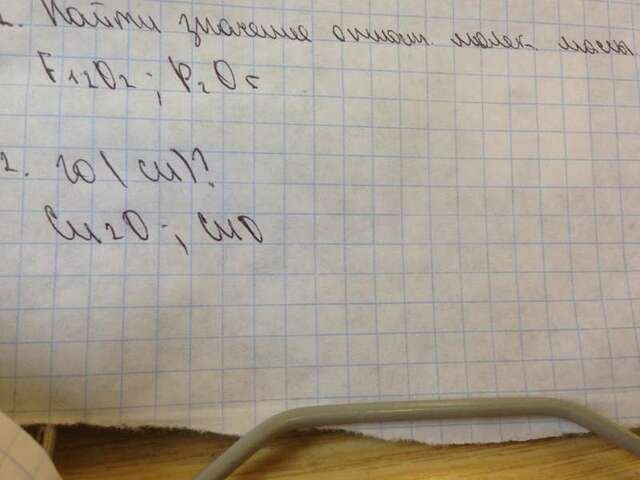 1. Найти значение относ. молек. массы
F12O2; P2O5
2. ω(Cu)?
Cu2O; CuO